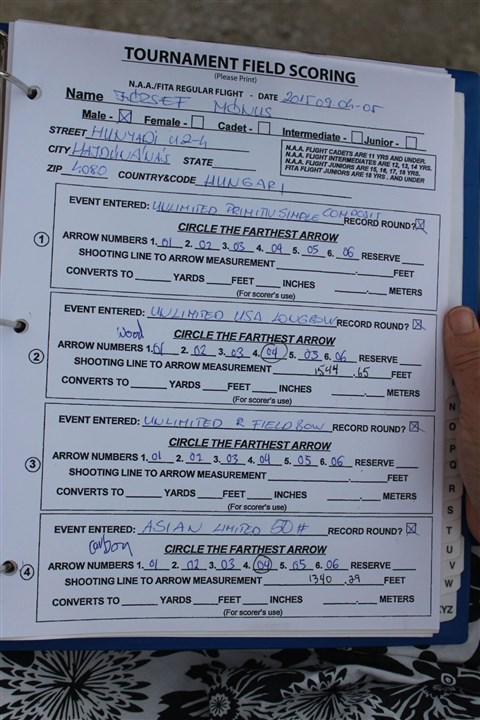 TOURNAMENT FIELD SCORING
(Please Print)
N.A.A./FITA REGULAR FLIGHT - DATE 2015 09 04-05
Name JOZSEF MONUS
Male - ☒ Female - ☐ Cadet - ☐ Intermediate - ☐ Junior - ☐
STREET HUNYADI U2-4
N.A.A. FLIGHT CADETS ARE 11 YRS AND UNDER.
N.A.A. FLIGHT INTERMEDIATES ARE 12, 13, 14 YRS.
N.A.A. FLIGHT JUNIORS ARE 15, 16, 17, 18 YRS.
FITA FLIGHT JUNIORS ARE 18 YRS . AND UNDER
CITY HAJDUNANAS STATE
ZIP 4080 COUNTRY&CODE HUNGARI
EVENT ENTERED: UNLIMITED PRIMITIV SIMPLE COMPOSIT RECORD ROUND? ☒
1 CIRCLE THE FARTHEST ARROW
ARROW NUMBERS 1. 01 2. 02 3. 03 4. 04 5. 05 6. 06 RESERVE
SHOOTING LINE TO ARROW MEASUREMENT . FEET
CONVERTS TO YARDS FEET INCHES . METERS
(For scorer's use)
EVENT ENTERED: UNLIMITED USA LONGBOW RECORD ROUND? ☒
wood
2 CIRCLE THE FARTHEST ARROW
ARROW NUMBERS 1. 01 2. 02 3. 03 4. 04 5. 05 6. 06 RESERVE
SHOOTING LINE TO ARROW MEASUREMENT 1544 .65 FEET
CONVERTS TO YARDS FEET INCHES . METERS
(For scorer's use)
EVENT ENTERED: UNLIMITED R FIELDBOW RECORD ROUND? ☒
3 CIRCLE THE FARTHEST ARROW
ARROW NUMBERS 1. 01 2. 02 3. 03 4. 04 5. 05 6. 06 RESERVE
SHOOTING LINE TO ARROW MEASUREMENT . FEET
CONVERTS TO YARDS FEET INCHES . METERS
(For scorer's use)
EVENT ENTERED: ASIAN LIMITED 50# RECORD ROUND? ☒
carbon
4 CIRCLE THE FARTHEST ARROW
ARROW NUMBERS 1. 01 2. 02 3. 03 4. 04 5. 05 6. 06 RESERVE
SHOOTING LINE TO ARROW MEASUREMENT 1340 .29 FEET
CONVERTS TO YARDS FEET INCHES . METERS
(For scorer's use)
N
O
P
Q
R
S
T
U
V
W
XYZ